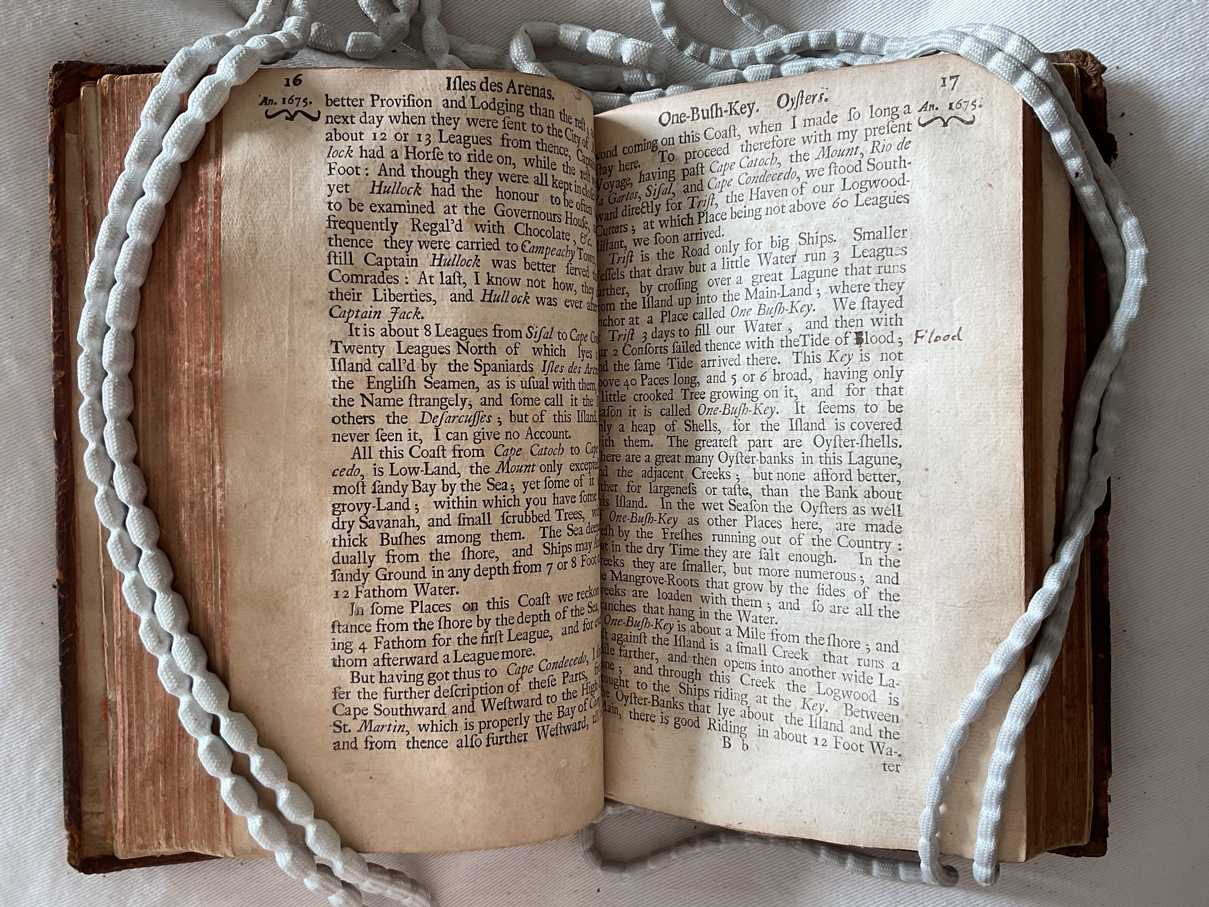 16
Iſles des Arenas.
An. 1675.
better Proviſion and Lodging than the reſt;
next day when they were ſent to the City of
about 12 or 13 Leagues from thence,
lock had a Horſe to ride on, while the
Foot: And though they were all kept
yet Hullock had the honour to be often
to be examined at the Governours Houſe,
frequently Regal'd with Chocolate, &c.
thence they were carried to Campeachy Town
ſtill Captain Hullock was better ſerved
Comrades: At laſt, I know not how, they
their Liberties, and Hullock was ever after
Captain Jack.
It is about 8 Leagues from Siſal to Cape
Twenty Leagues North of which lyes
Iſland call'd by the Spaniards Iſles des
the Engliſh Seamen, as is uſual with them,
the Name ſtrangely, and ſome call it the
others the Deſarcuſſes; but of this Iſland,
never ſeen it, I can give no Account.
All this Coaſt from Cape Catoch to Cape
cedo, is Low-Land, the Mount only
moſt ſandy Bay by the Sea; yet ſome of it
grovy-Land; within which you have ſome
dry Savanah, and ſmall ſcrubbed Trees,
thick Buſhes among them. The Sea
dually from the ſhore, and Ships may
ſandy Ground in any depth from 7 or 8 Foot
12 Fathom Water.
In ſome Places on this Coaſt we reckon
ſtance from the ſhore by the depth of the Sea,
ing 4 Fathom for the firſt League, and for
thom afterward a League more.
But having got thus to Cape Condecedo, I
fer the further deſcription of theſe Parts,
Cape Southward and Weſtward to the High
St. Martin, which is properly the Bay of
and from thence alſo further Weſtward,
17
One-Buſh-Key. Oyſters.
An. 1675.
cond coming on this Coaſt, when I made ſo long a
ſtay here. To proceed therefore with my preſent
Voyage, having paſt Cape Catoch, the Mount, Rio de
la Gartos, Siſal, and Cape Condecedo, we ſtood South-
ward directly for Triſt, the Haven of our Logwood-
Cutters; at which Place being not above 60 Leagues
diſtant, we ſoon arrived.
Triſt is the Road only for big Ships. Smaller
Veſſels that draw but a little Water run 3 Leagues
farther, by croſſing over a great Lagune that runs
from the Iſland up into the Main-Land; where they
anchor at a Place called One Buſh-Key. We ſtayed
Triſt 3 days to fill our Water, and then with
2 Conſorts ſailed thence with the Tide of Flood; Flood
the ſame Tide arrived there. This Key is not
above 40 Paces long, and 5 or 6 broad, having only
little crooked Tree growing on it, and for that
reaſon it is called One-Buſh-Key. It ſeems to be
only a heap of Shells, for the Iſland is covered
with them. The greateſt part are Oyſter-ſhells.
There are a great many Oyſter-banks in this Lagune,
the adjacent Creeks; but none afford better,
either for largeneſs or taſte, than the Bank about
this Iſland. In the wet Seaſon the Oyſters as well
One-Buſh-Key as other Places here, are made
freſh by the Freſhes running out of the Country:
but in the dry Time they are ſalt enough. In the
Creeks they are ſmaller, but more numerous; and
Mangrove-Roots that grow by the ſides of the
Creeks are loaden with them; and ſo are all the
Branches that hang in the Water.
One-Buſh-Key is about a Mile from the ſhore; and
againſt the Iſland is a ſmall Creek that runs a
Mile farther, and then opens into another wide La-
gune; and through this Creek the Logwood is
brought to the Ships riding at the Key. Between
the Oyſter-Banks that lye about the Iſland and the
Main, there is good Riding in about 12 Foot Wa-
B b
ter